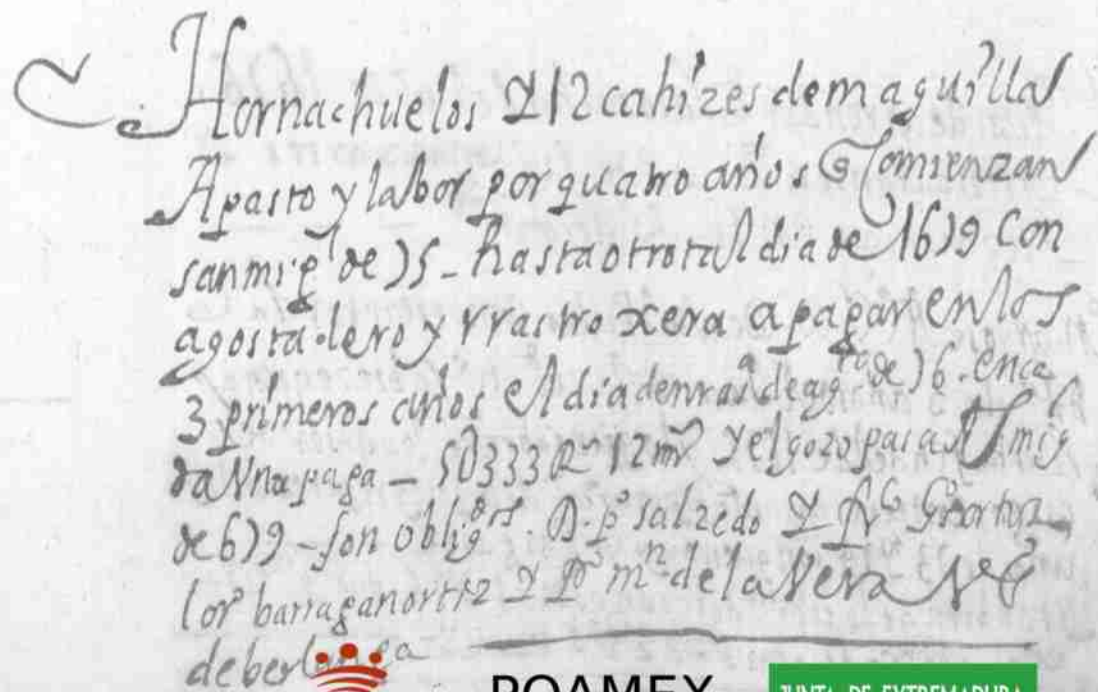 Hornachuelos Y 12 cahizes de maguilla
A pasto y labor por quatro años q Comienzan
san mig^l de 35 - hasta otro tal dia de 1639 Con
agostadero y rrastroxera a pagar en los
3 primeros años el dia de nra s^a de ag^to de 36. en ca
da Una paga - 50333 R^s 12 m^s y el gozo para S^t mig^l
de 639 - son oblig^os. D. p^o salzedo Y
lor^o barragan ortiz Y m^n de la Vera V^os
de berlanga
ROAMEX
JUNTA DE EXTREMADURA